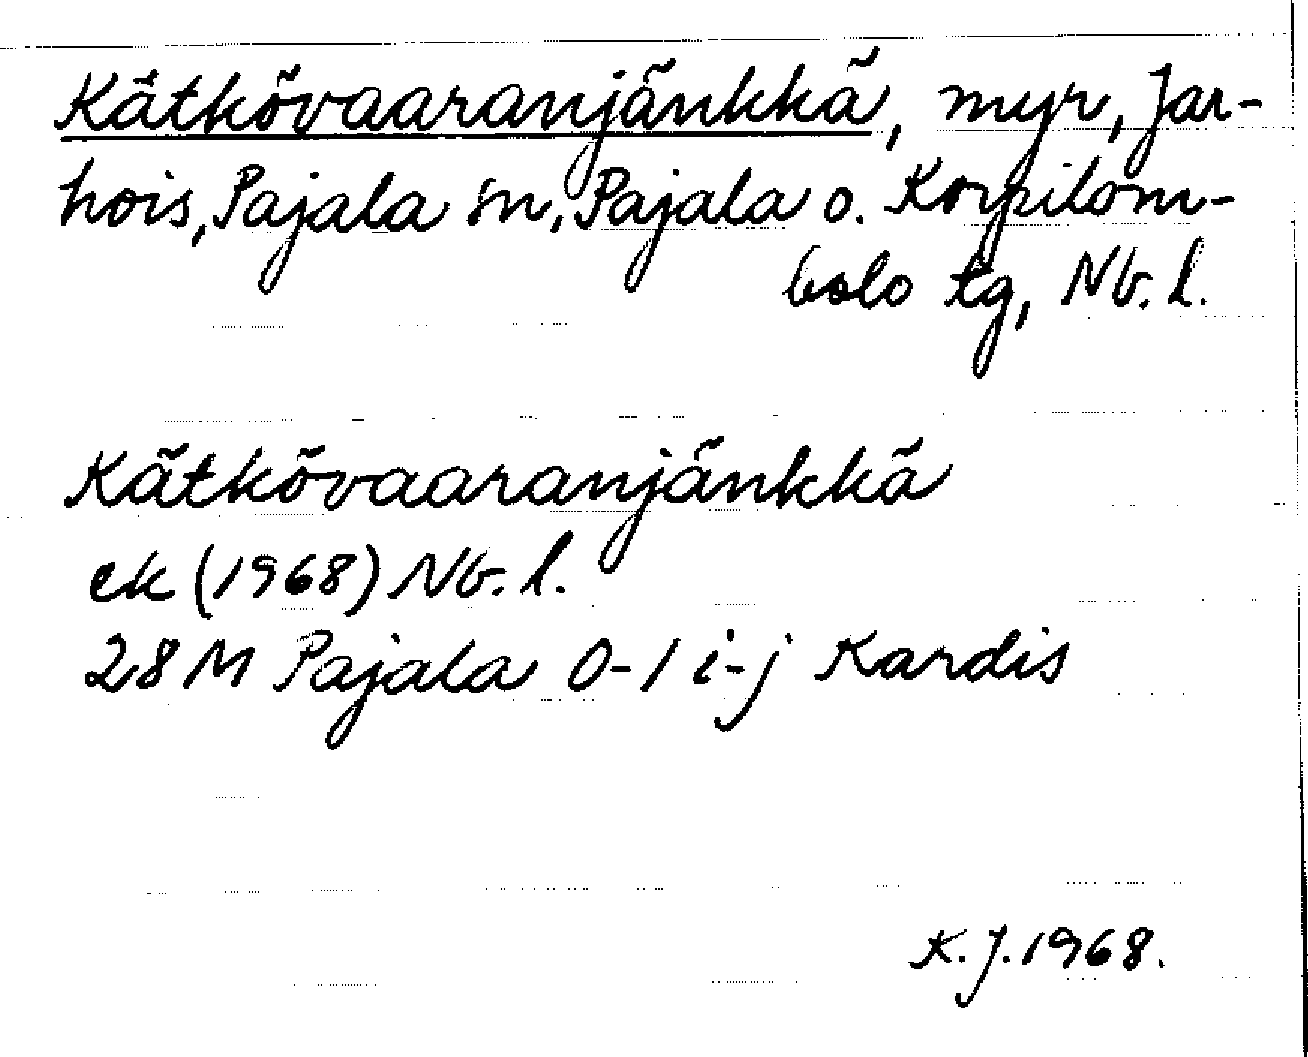 Kätkövaaranjänkkä, myr, Jar-
hois, Pajala sn, Pajala o. Korpilom-
bolo tg, Nb. l.
Kätkövaaranjänkkä
ek (1968) Nb. l.
28 M Pajala 0-1 i-j Kardis
K. J. 1968.